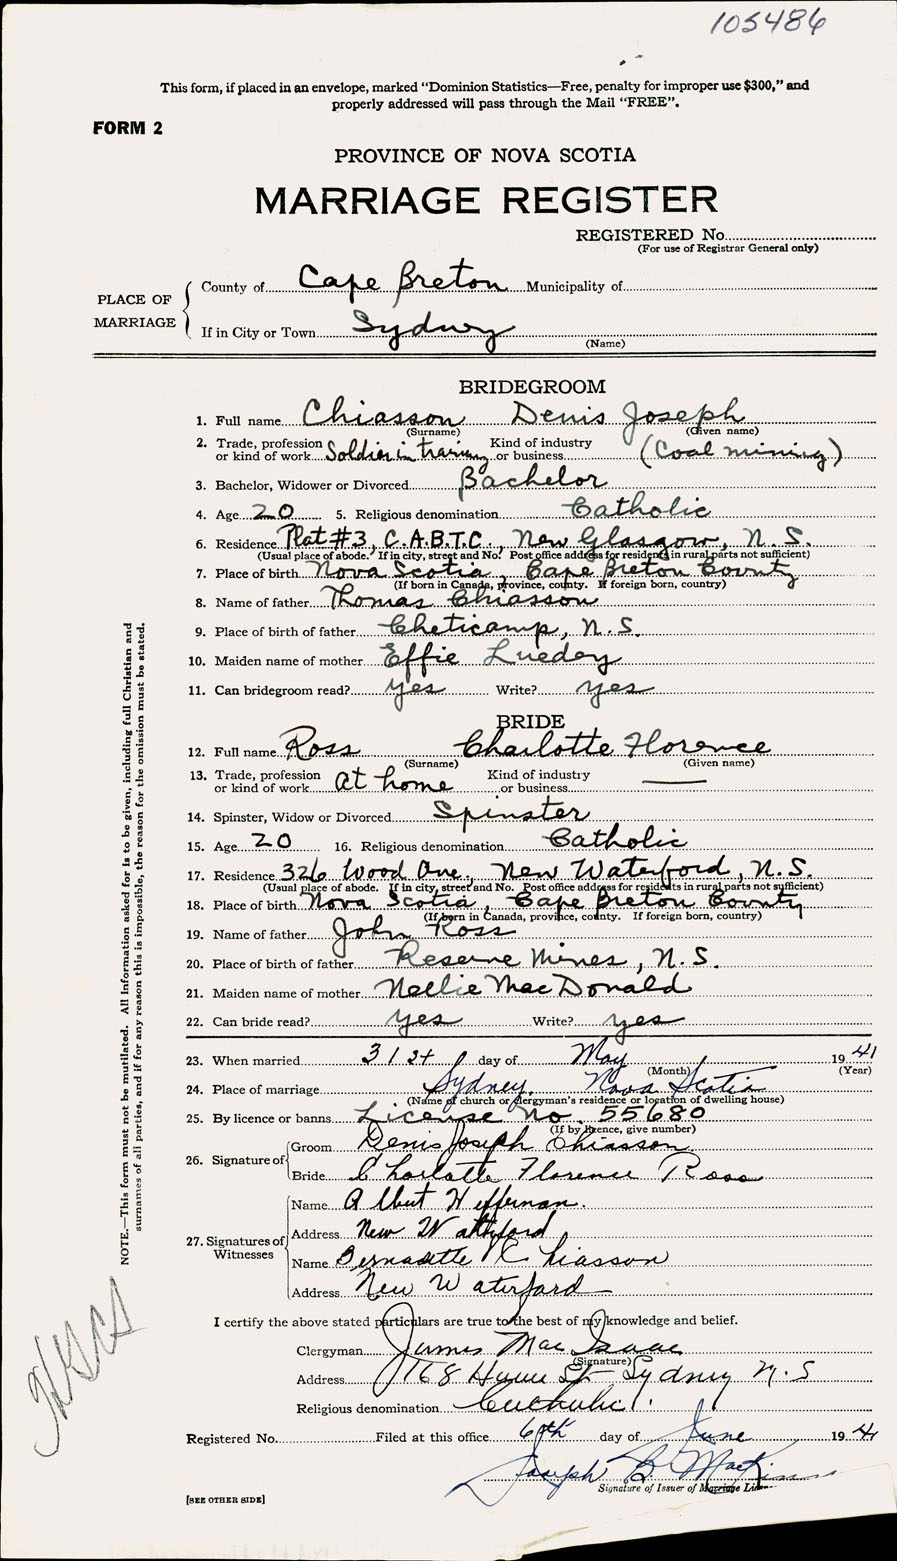 105486
This form, if placed in an envelope, marked "Dominion Statistics—Free, penalty for improper use $300," and
properly addressed will pass through the Mail "FREE".
FORM 2
PROVINCE OF NOVA SCOTIA
MARRIAGE REGISTER
REGISTERED No.
(For use of Registrar General only)
PLACE OF MARRIAGE
County of Cape Breton Municipality of
If in City or Town Sydney
(Name)
BRIDEGROOM
1. Full name Chiasson Denis Joseph
(Surname) (Given name)
2. Trade, profession or kind of work Soldier in training Kind of industry or business (Coal mining)
3. Bachelor, Widower or Divorced Bachelor
4. Age 20 5. Religious denomination Catholic
6. Residence Plat #3, C.A.B.T.C., New Glasgow, N.S.
(Usual place of abode. If in city, street and No. Post office address for residents in rural parts not sufficient)
7. Place of birth Nova Scotia, Cape Breton County
(If born in Canada, province, county. If foreign born, country)
8. Name of father Thomas Chiasson
9. Place of birth of father Cheticamp, N.S.
10. Maiden name of mother Effie Luedey
11. Can bridegroom read? yes Write? yes
BRIDE
12. Full name Ross Charlotte Florence
(Surname) (Given name)
13. Trade, profession or kind of work At home Kind of industry or business —
14. Spinster, Widow or Divorced Spinster
15. Age 20 16. Religious denomination Catholic
17. Residence 326 Wood Ave., New Waterford, N.S.
(Usual place of abode. If in city, street and No. Post office address for residents in rural parts not sufficient)
18. Place of birth Nova Scotia, Cape Breton County
(If born in Canada, province, county. If foreign born, country)
19. Name of father John Ross
20. Place of birth of father Reserve Mines, N.S.
21. Maiden name of mother Nellie MacDonald
22. Can bride read? yes Write? yes
23. When married 31st day of May 1941
(Month) (Year)
24. Place of marriage Sydney, Nova Scotia
(Name of church or clergyman's residence or location of dwelling house)
25. By licence or banns License No. 55680
(If by licence, give number)
26. Signature of Groom Denis Joseph Chiasson
Bride Charlotte Florence Ross
27. Signatures of Witnesses
Name Albert Heffernan.
Address New Waterford
Name Bernadette Chiasson
Address New Waterford
I certify the above stated particulars are true to the best of my knowledge and belief.
Clergyman James MacIsaac
(Signature)
Address 168 St Sydney N.S
Religious denomination Catholic.
Registered No. Filed at this office 6th day of June 1941
Joseph B.
Signature of Issuer of Marriage
[SEE OTHER SIDE]
NOTE.—This form must not be mutilated. All information asked for is to be given, including full Christian and
surnames of all parties, and if for any reason this is impossible, the reason for the omission must be stated.